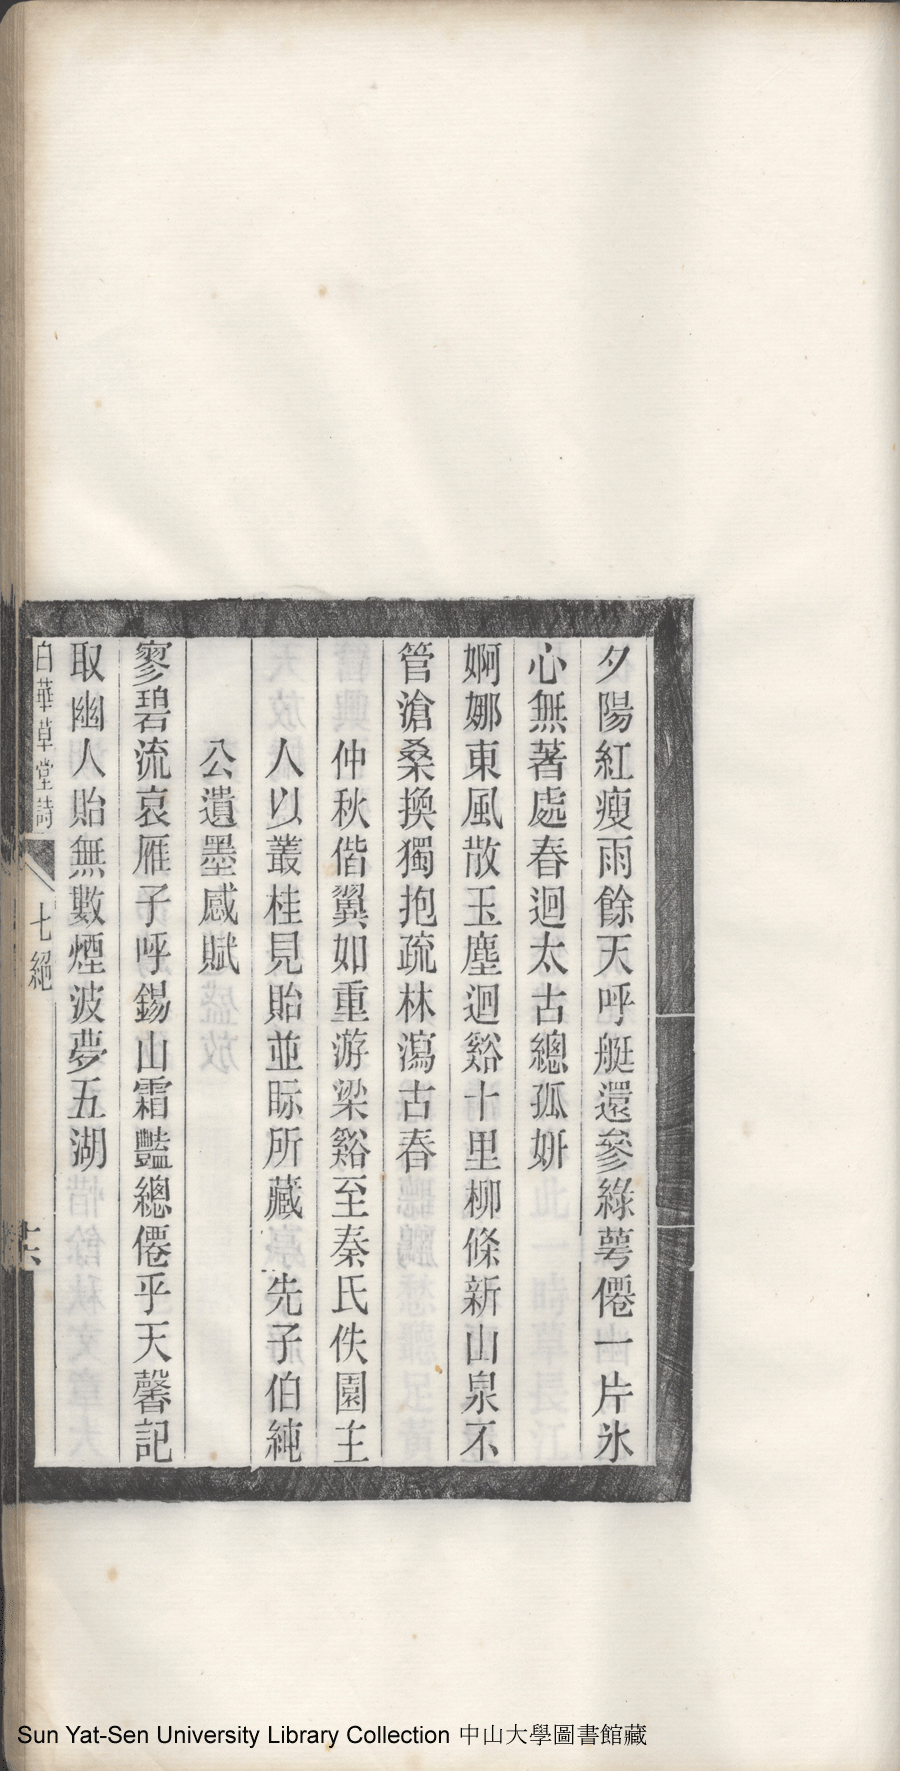 夕陽紅瘦雨餘天呼艇還參綠萼僊一片氷
心無著處春迴太古總孤妍
婀娜東風散玉塵迴谿十里柳條新山泉不
管滄桑換獨抱疏林瀉古春
仲秋偕翼如重游梁谿至秦氏佚園主
人以叢桂見貽並眎所藏先子伯純
公遺墨感賦
寥碧流哀雁子呼錫山霜豔總僊乎天馨記
取幽人貽無數煙波夢五湖
白華草堂詩 七絕
Sun Yat-Sen University Library Collection 中山大學圖書館藏